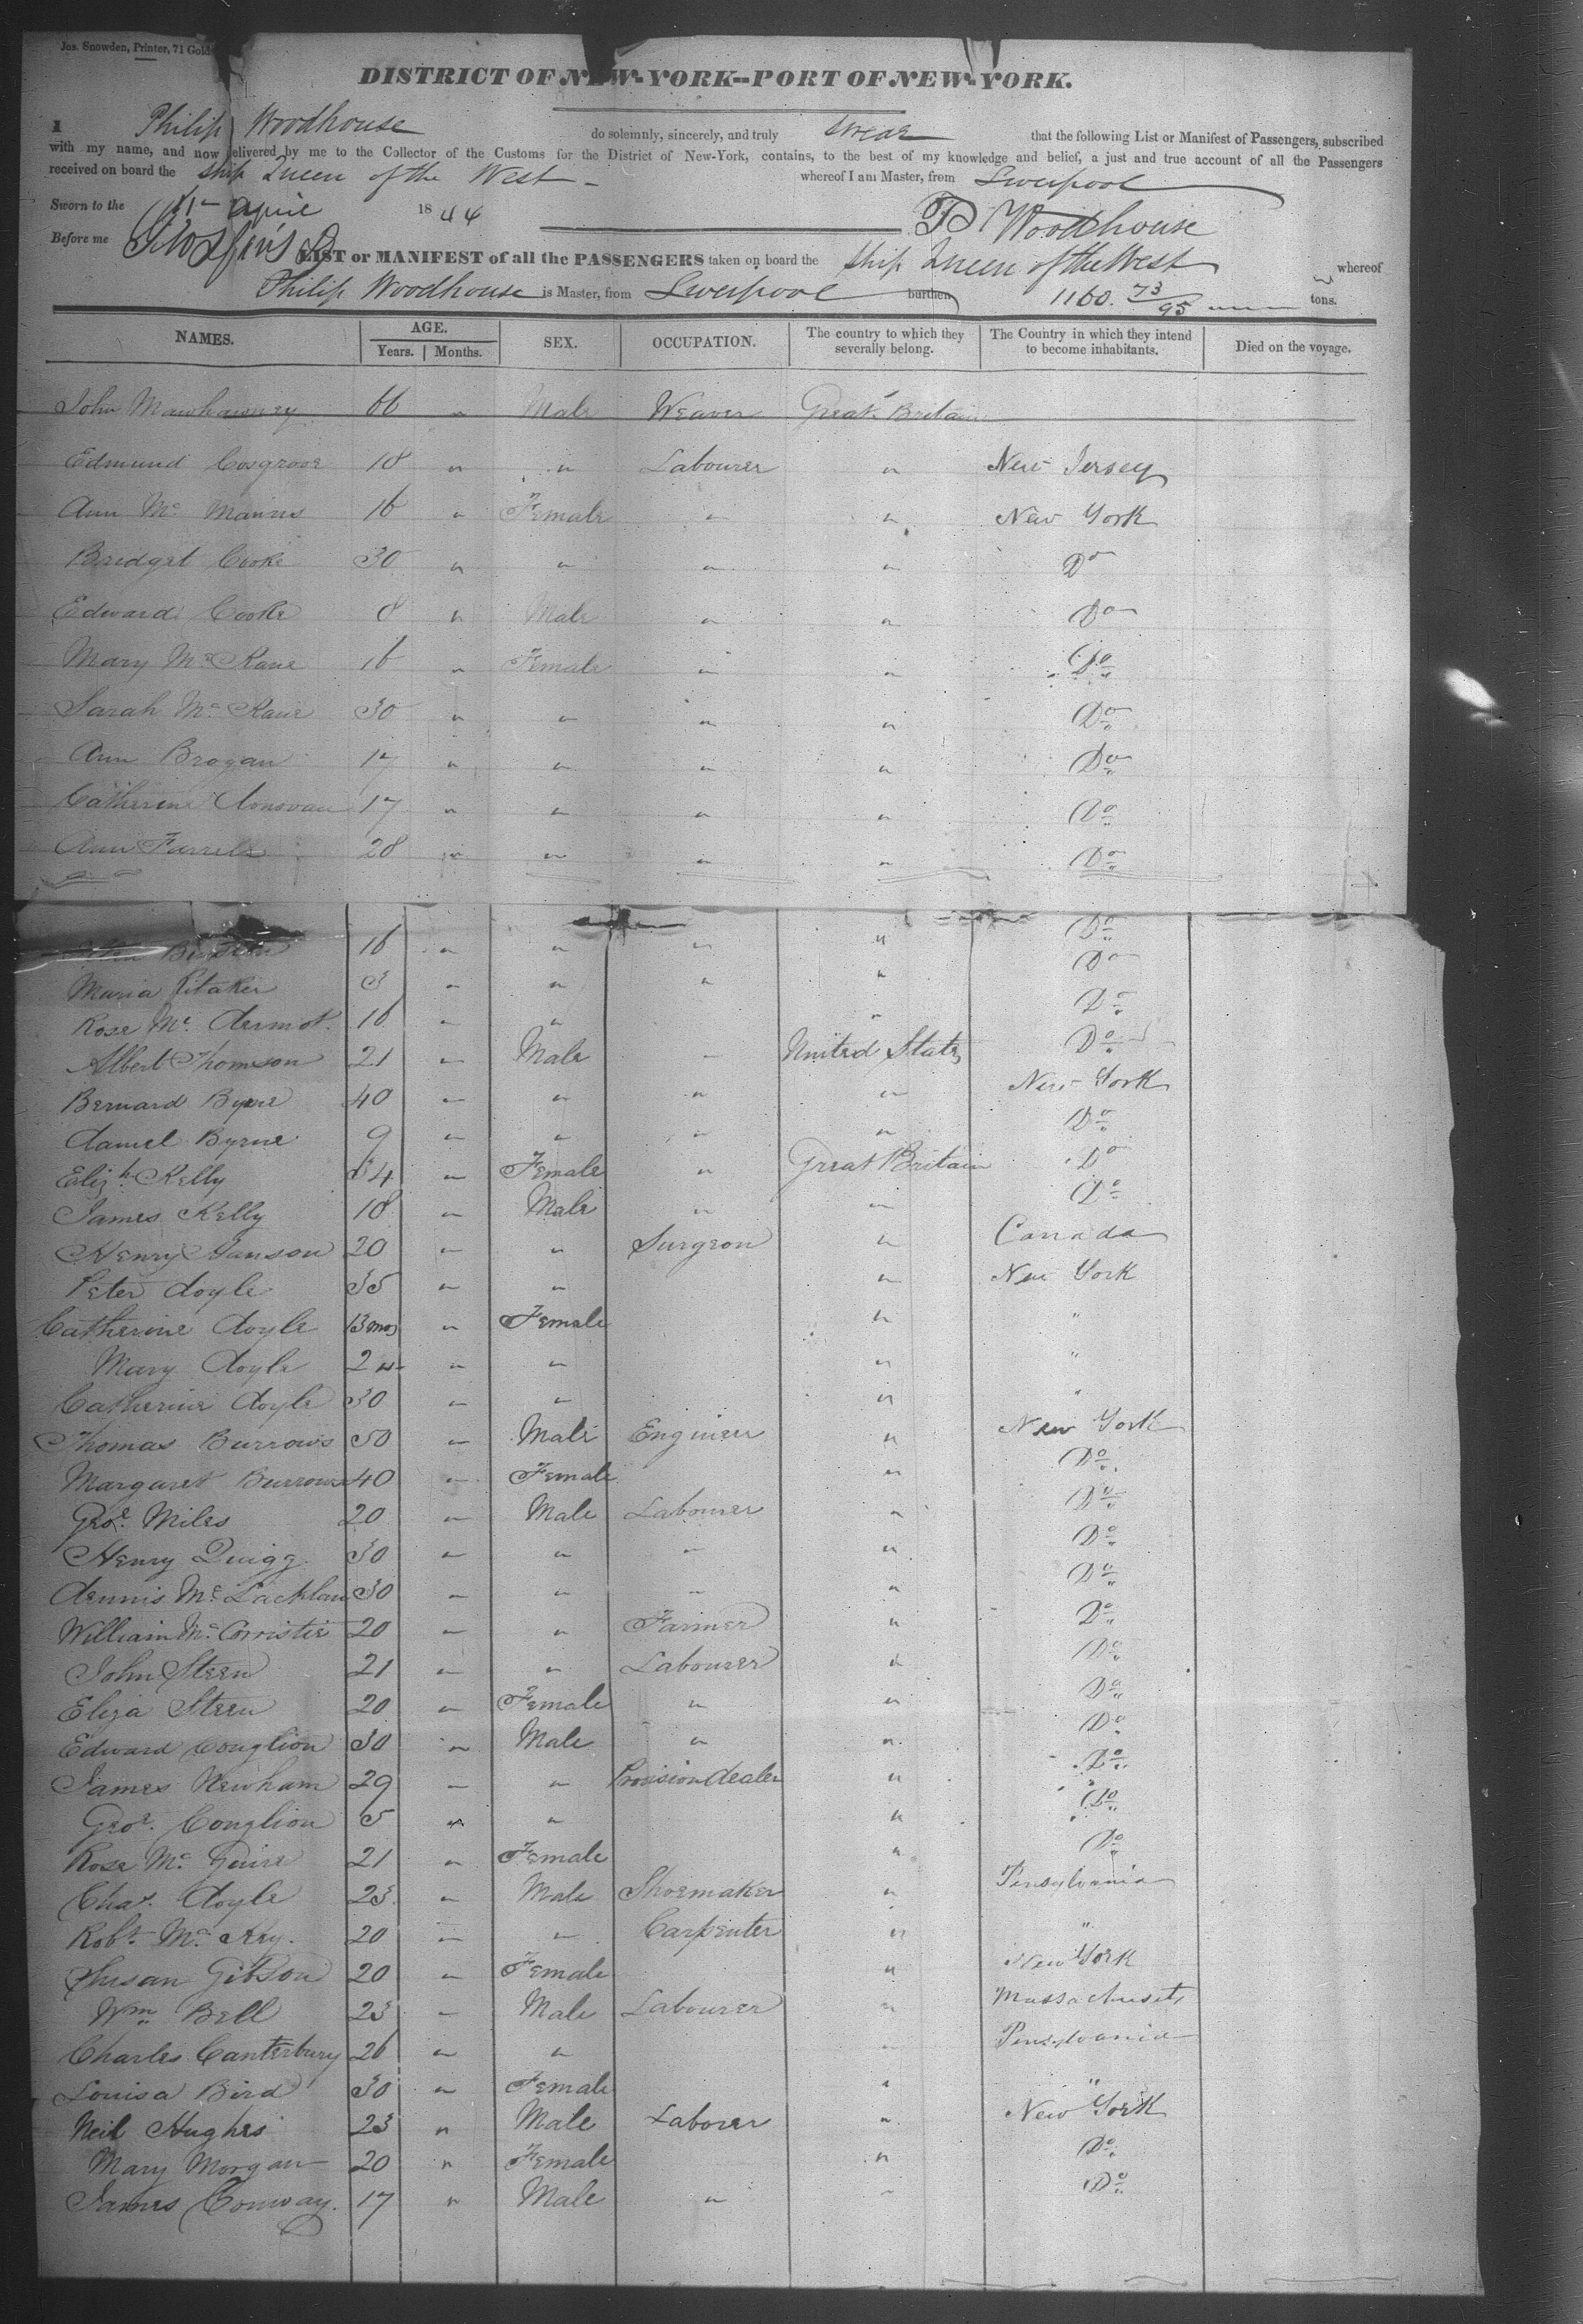 Jos. Snowden, Printer, 71 Gold
DISTRICT OF NEW-YORK--PORT OF NEW-YORK.
I Philip Woodhouse do solemnly, sincerely, and truly swear that the following List or Manifest of Passengers, subscribed
with my name, and now delivered by me to the Collector of the Customs for the District of New-York, contains, to the best of my knowledge and belief, a just and true account of all the Passengers
received on board the ship Queen of the West whereof I am Master, from Liverpool
Sworn to the April 1844
P Woodhouse
Before me
LIST or MANIFEST of all the PASSENGERS taken on board the ship Queen of the West whereof
Philip Woodhouse is Master, from Liverpool burthen 1160. 73/95 tons.
NAMES. AGE. Years. Months. SEX. OCCUPATION. The country to which they severally belong. The Country in which they intend to become inhabitants. Died on the voyage.
John Mawhawney 66 " Male Weaver Great Britain
Edmund Cosgrove 18 " " Labourer " New Jersey
Ann Mc Manus 16 " Female " " New York
Bridget Cooke 30 " " " " Do
Edward Cooke 8 " Male " " Do
Mary Mc Kane 16 " Female " " Do
Sarah Mc Kane 30 " " " " Do
Ann Brogan 17 " " " " Do
Catherine Donovan 17 " " " " Do
Ann Furrell 28 " " " " Do
16 " " " " Do
Maria Pitaker 3 " " " " Do
Rose Mc Dermot. 16 " " " Do
Albert Thomson 21 " Male " United States Do
Bernard Byrne 40 " " " " New York
Daniel Byrne 9 " " " " Do
Elizh Kelly 34 " Female " Great Britain Do
James Kelly 18 " Male " " Do
Henry Hanson 20 " " Surgeon " Canada
Peter Doyle 35 " " " New York
Catherine Doyle 13 mos " Female " "
Mary Doyle 24 " " " "
Catherine Doyle 30 " " " "
Thomas Burrows 50 " Male Engineer " New York
Margaret Burrows 40 " Female " Do
Geoe. Miles 20 " Male Labourer " Do
Henry Quigg 30 " " " " Do
Dennis Mc Lachlan 30 " " " " Do
William Mc Corristie 20 " " Farmer " Do
John Steen 21 " " Labourer " Do
Eliza Steen 20 " Female " " Do
Edward Conglion 30 " Male " " Do
James Newham 29 " " Provision dealer " Do
Geoe. Conglion 5 " " " Do
Rose Mc Guire 21 " Female " Do
Chas. Doyle 23 " Male Shoemaker " Pensylvania
Robt. Mc Key. 20 " " Carpenter " "
Susan Gibson 20 " Female " New York
Wm Bell 23 " Male Labourer " Massachusets
Charles Canterbury 26 " " " Pensylvania
Louisa Bird 30 " Female " "
Neil Hughes 23 " Male Laborer " New York
Mary Morgan 20 " Female " Do
James Conway. 17 " Male " " Do